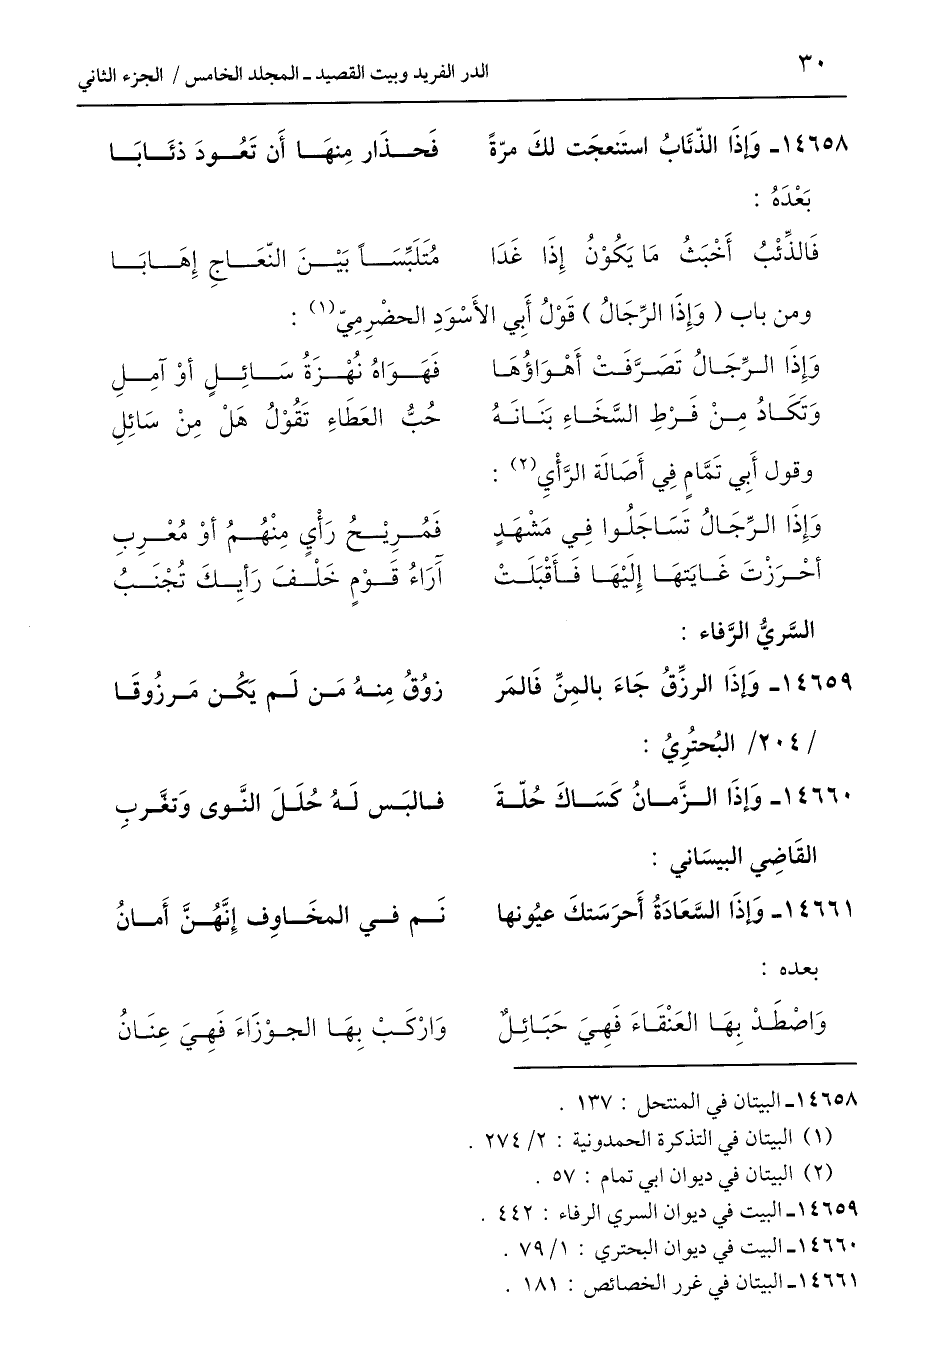 ٣٠
الدر الفريد وبيت القصيد ـ المجلد الخامس / الجزء الثاني
١٤٦٥٨ـ وَإِذَا الذّئَابُ استَنعجَت لكَ مرّةً فَحذَار مِنهَا أَن تَعُودَ ذئَابَا
بَعْدَهُ :
فَالذِّئْبُ أَخْبَثُ مَا يَكُوْنُ إِذَا غَدَا مُتَلَبِّسَاً بَيْنَ النِّعَاجِ إِهَابَا
ومن باب ( وَإِذَا الرِّجَالُ ) قَوْلُ أَبِي الأَسْوَدِ الحضْرمِيّ(١) :
وَإِذَا الرِّجَالُ تَصَرَّفَتْ أَهْوَاؤُهَا فَهَوَاهُ نُهْزَةُ سَائِلٍ أَوْ آمِلِ
وَتَكَادُ مِنْ فَرْطِ السَّخَاءِ بَنَانَهُ حُبُّ العَطَاءِ تَقُوْلُ هَلْ مِنْ سَائِلِ
وقول أَبِي تَمَّامٍ فِي أَصَالَة الرَّأْيِ(٢) :
وَإِذَا الرِّجَالُ تَسَاجَلُوا فِي مَشْهَدٍ فَمُرِيْحُ رَأْيٍ مِنْهُمُ أَوْ مُعْرِبِ
أَحْرَزْتَ غَايَتهَا إِلَيْهَا فَأَقْبَلَتْ آرَاءُ قَوْمٍ خَلْفَ رَأيكَ تُجْنَبُ
السَّريُّ الرَّفاء :
١٤٦٥٩ـ وَإِذَا الرزّقُ جَاءَ بالمِنِّ فَالمَر زوُقُ مِنهُ مَن لَم يَكُن مَرزُوقَا
/ ٢٠٤/ البُحتُرِيُ :
١٤٦٦٠ـ وَإِذَا الزَّمانُ كَسَاكَ حُلّةَ فالبَس لَهُ حُلَلَ النَّوى وَتغَّربِ
القَاضِي البيسَاني :
١٤٦٦١ـ وَإِذَا السَّعَادَةُ أَحرَستكَ عيُونها نَم في المخَاوِف إِنَّهُنَّ أَمانُ
بعده :
وَاصْطَدْ بِهَا العَنْقَاءَ فَهِيَ حَبَائِلٌ وَارْكَبْ بِهَا الجوْزَاءَ فَهِيَ عِنَانُ
١٤٦٥٨ـ البيتان في المنتحل : ١٣٧ .
(١) البيتان في التذكرة الحمدونية : ٢/ ٢٧٤ .
(٢) البيتان في ديوان ابي تمام : ٥٧ .
١٤٦٥٩ـ البيت في ديوان السري الرفاء : ٤٤٢ .
١٤٦٦٠ـ البيت في ديوان البحتري : ١/ ٧٩ .
١٤٦٦١ـ البيتان في غرر الخصائص : ١٨١ .